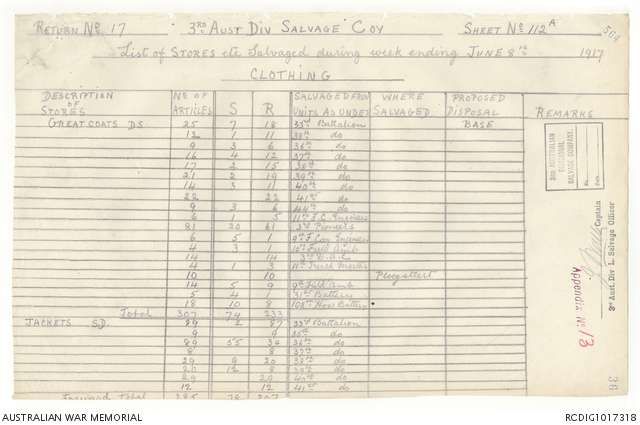 RETURN No. 17 3RD AUST DIV SALVAGE COY SHEET No. 112A
List of STORES etc Salvaged during week ending JUNE 8th 1917
CLOTHING
DESCRIPTION OF STORES No OF ARTICLES S R SALVAGED FROM UNITS AS UNDER WHERE SALVAGED PROPOSED DISPOSAL REMARKS
GREAT COATS D.S. 25 7 18 33rd Battalion BASE
12 1 11 35th do
9 3 6 36th do
16 4 12 37th do
17 2 15 38th do
21 2 19 39th do
14 3 11 40th do
22 22 41st do
9 3 6 44th do
6 1 5 11th F.C. Engineers
81 20 61 3rd Pioneers
6 5 1 9th F Coy Engineers
4 3 1 10th Field Amb
14 14 3rd D.A.C.
4 1 3 11th Trench Mortar
10 10 Ploegsteert
14 5 9 9th Field Amb
5 4 1 31st Battery
18 10 8 105th How Battery
Total 307 74 233
JACKETS S.D. 89 2 87 33rd Battalion
9 9 35th do
89 55 34 36th do
8 8 37th do
29 9 20 38th do
20 12 8 39th do
29 29 40th do
12 12 41st do
Forward Total 285 78 207
3RD AUSTRALIAN
DIVISIONAL
SALVAGE COMPANY.
No.
Date
Captain
3rd Aust. Div I. Salvage Officer
Appendix No. 13
38
AUSTRALIAN WAR MEMORIAL RCDIG1017318